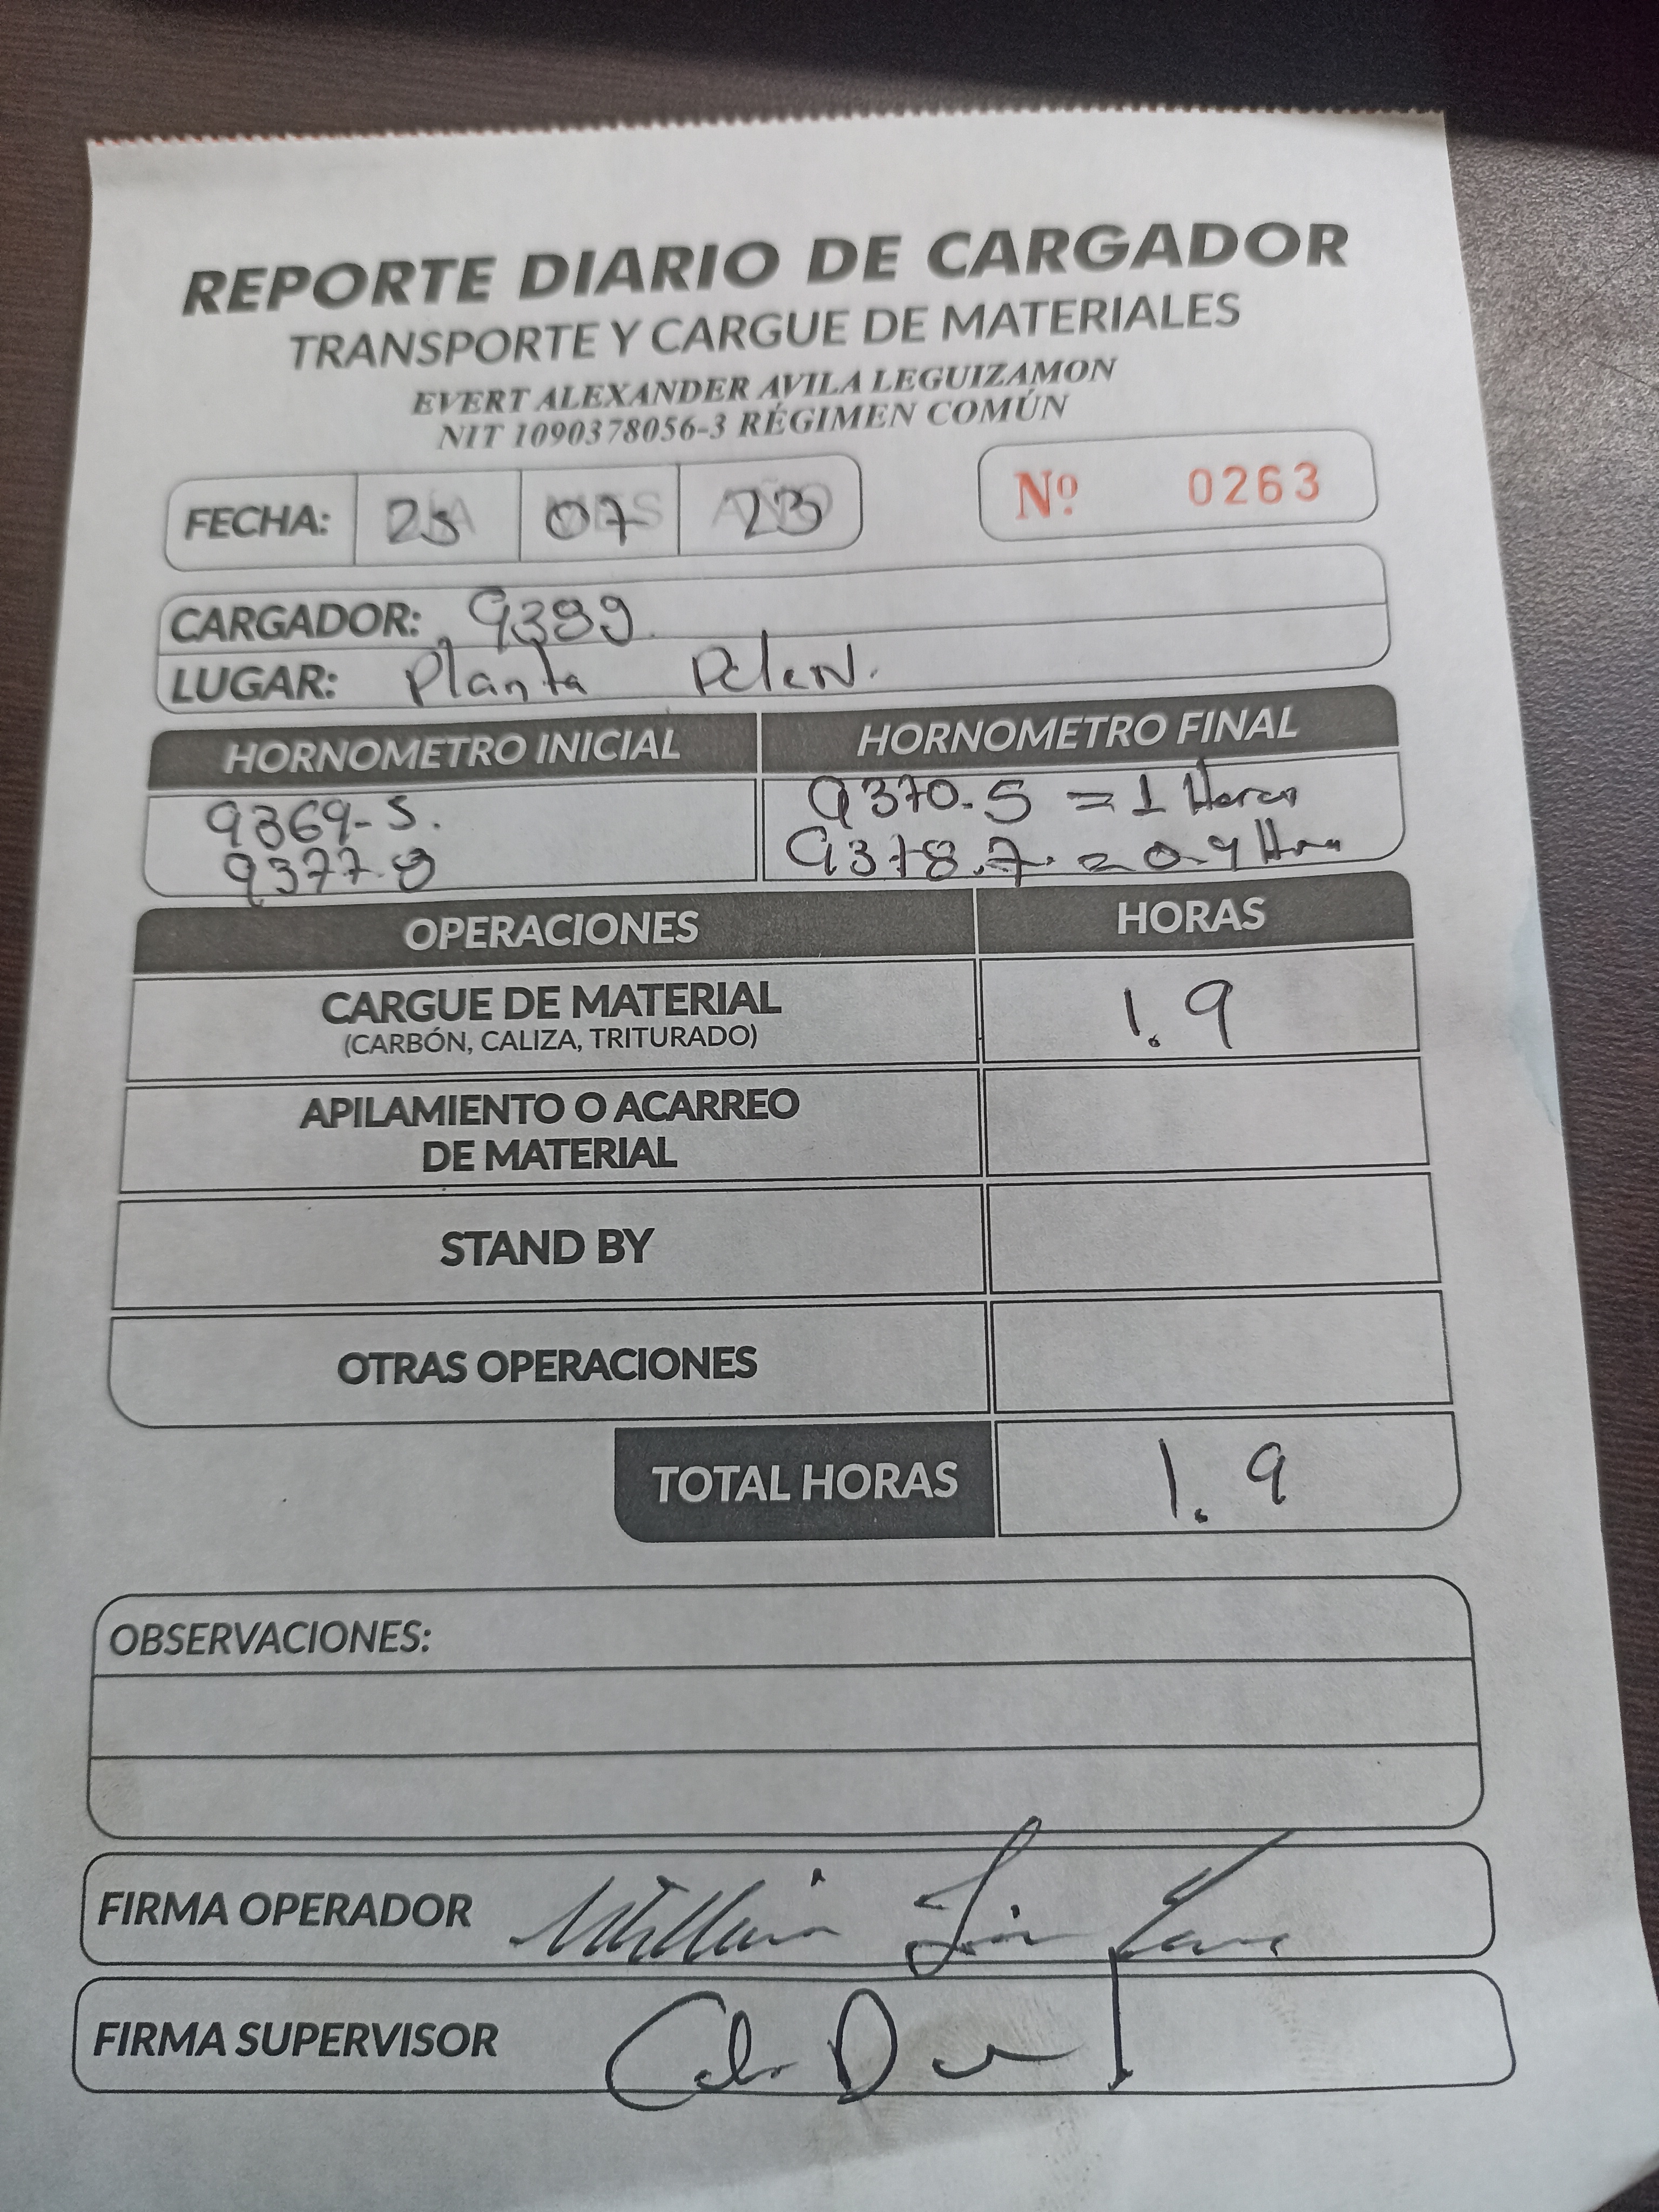 REPORTE DIARIO DE CARGADOR
TRANSPORTE Y CARGUE DE MATERIALES
EVERT ALEXANDER AVILA LEGUIZAMON
NIT 1090378056-3 RÉGIMEN COMÚN
FECHA: 25 07 23 Nº 0263
CARGADOR: 9399
LUGAR: Planta
HORNOMETRO INICIAL HORNOMETRO FINAL
9369-5. 9370.5 = 1 Hora
9377.8 9378.7. = 0.9 Hora
OPERACIONES HORAS
CARGUE DE MATERIAL 1.9
(CARBÓN, CALIZA, TRITURADO)
APILAMIENTO O ACARREO
DE MATERIAL
STAND BY
OTRAS OPERACIONES
TOTAL HORAS 1.9
OBSERVACIONES:
FIRMA OPERADOR
FIRMA SUPERVISOR